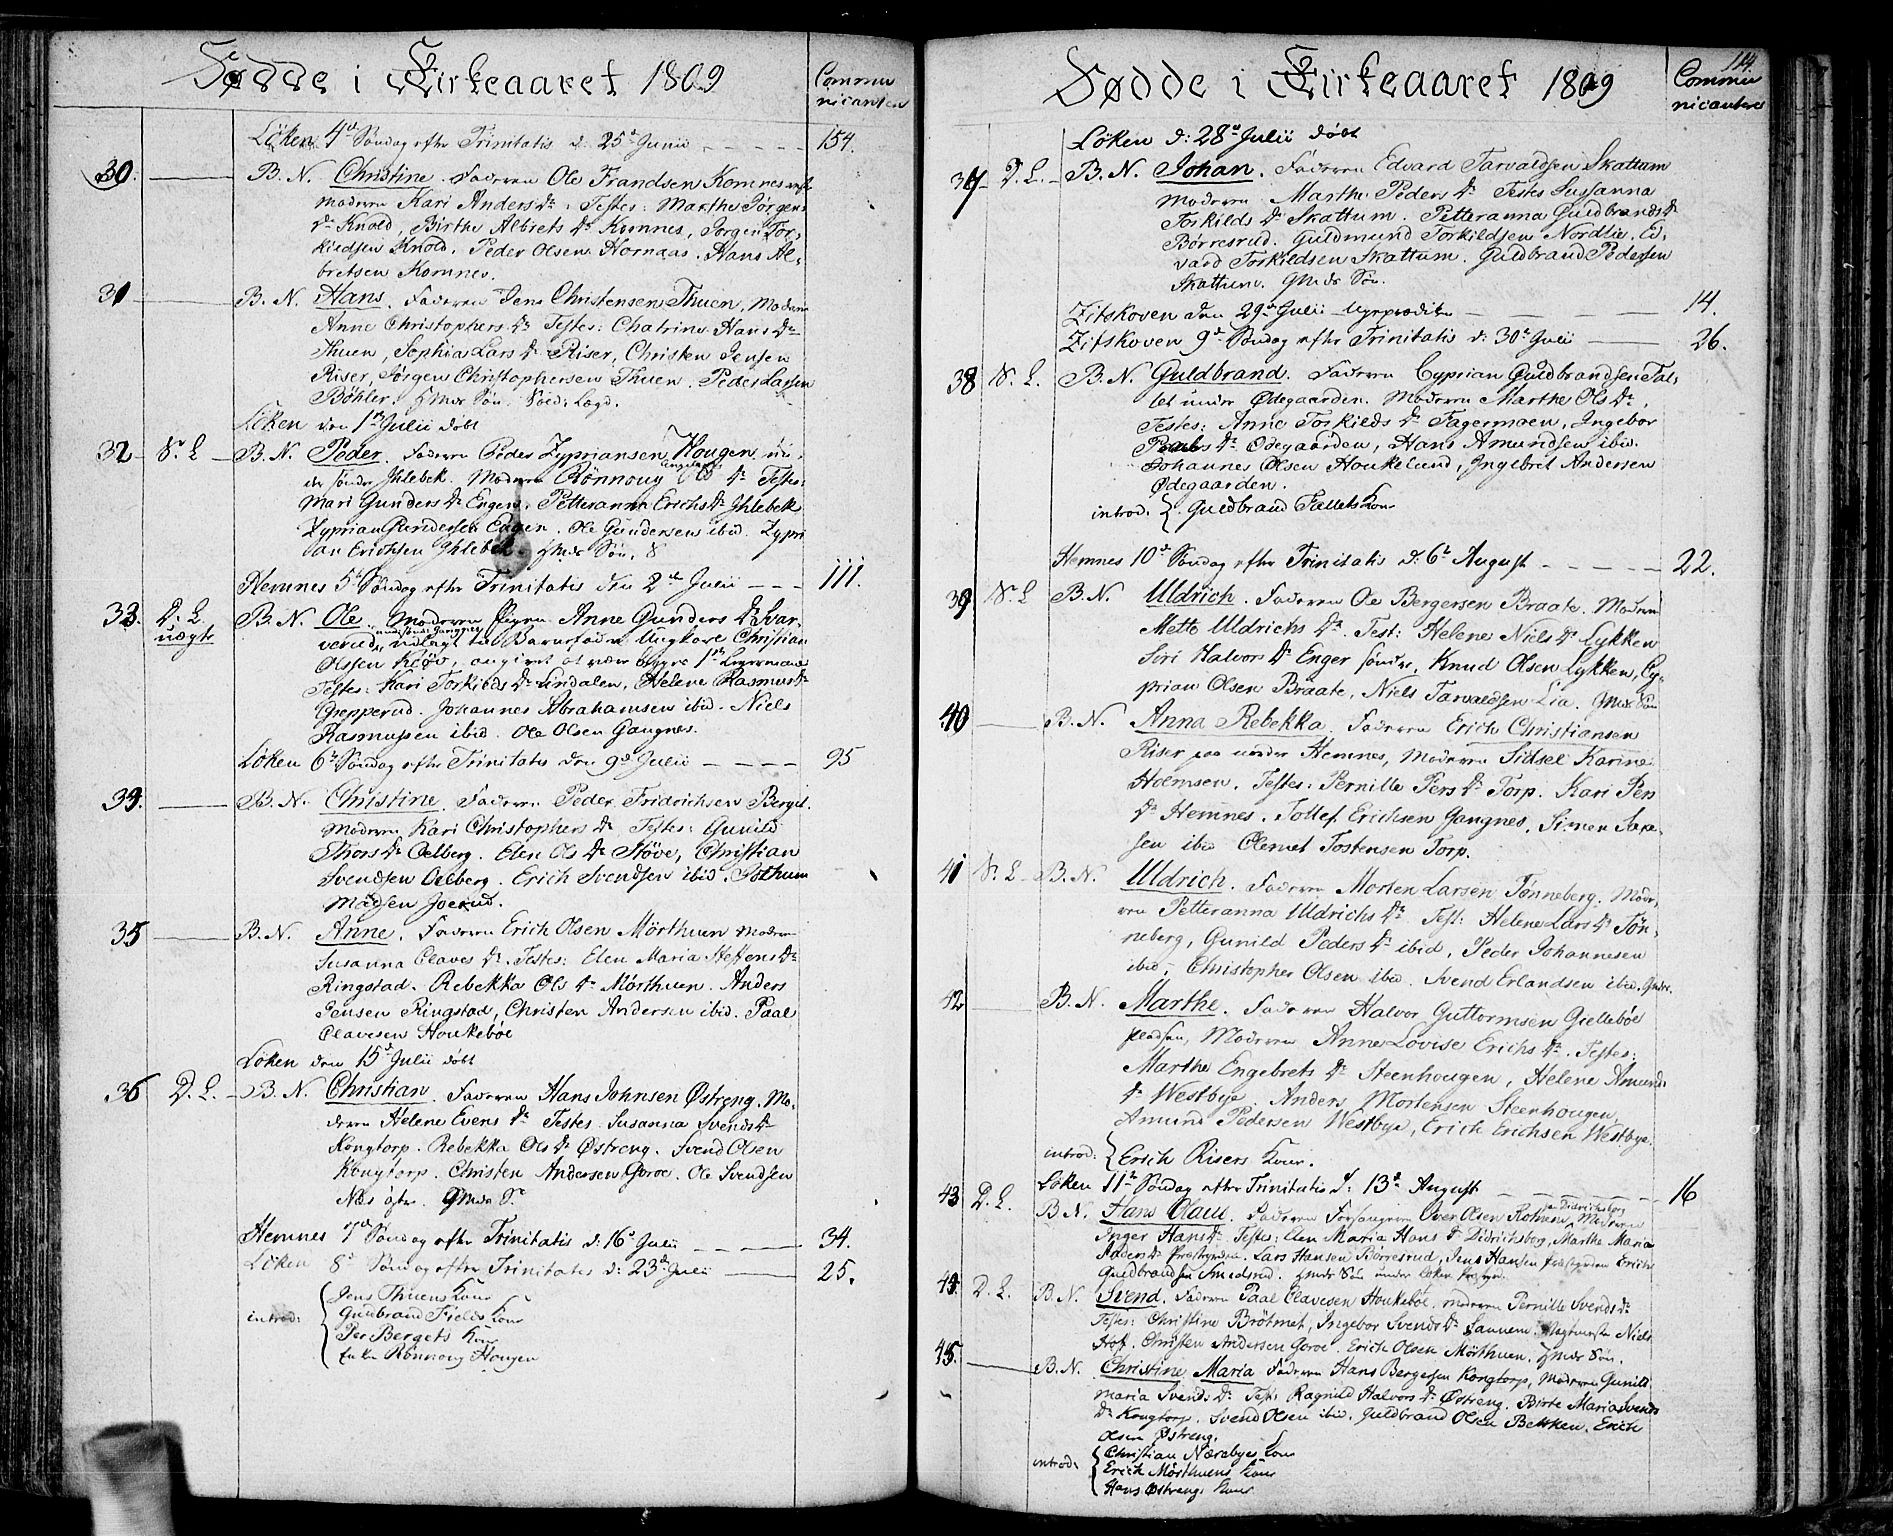 Fødde i Kirkeaaret 1809
Commu
nicanter
Löken 4de Söndag efter Trinitatis d: 25de Junii 154.
30. B. N. Christine. Faderen Ole Frandsen Komnes
moderen Kari Anders Dr. Testes: Marthe Jörgens
Dr Knold, Birthe Albrets Dr Komnes, Jörgen Tor-
kildsen Knold. Peder Olsen Hornaas. Hans Al-
bretsen Komnes.
31 B. N. Hans. Faderen Jens Christensen Thuen, Moderen
Anne Christophers Dr Testes: Chatrine Hans Dr
Thuen, Sophia Lars Dr Riser, Christen Jensen
Riser, Jörgen Christophersen Thuen. Peder Larsen
Böhler. Gmds Sön. Soed: Lægd.
Löken den 1ste Julii döbt
32 S. L B. N. Peder. Faderen Peder Zypriansen Hougen un-
der söndre Ihlebek. Moderen Rönnoug Ols Dr Testes:
Mari Gunders Dr Engen. Petteranna Erichs Dr Ihlebek
Zyprian Gundersen Engen. Ole Gundersen ibid. Zypri
an Erichsen Ihlebek. Gmds Sön. S
Hemnes 5te Söndag efter Trinitatis den 2den Julii 111.
33. D. L
uægte
B. N. Ole. Moderen Pigen Anne Gunders Dr Svar-
verud, udlagt til Barnefader Ungkarl Christian
Olssen Kløv, angivet at være begges 1ste Leiermaal
Testes: Kari Torkilds Dr Lindalen, Helene Rasmus Dr
Grepperud. Johannes Abrahamsen ibid. Niels
Rasmussen ibid. Ole Olsen Gangnes.
Löken 6te Söndag efter Trinitatis den 9de Julii 95
34. B. N. Christine. Faderen Peder Fridrichsen Berget.
Moderen Kari Christophers Dr Testes: Gunild
Thors Dr Oelberg. Elen Ols Dr Höve, Christian
Svendsen Oelberg. Erich Svendsen ibid.
Madsen Joerud.
35 B. N. Anne. Faderen Erich Olsen Mörthuen Moderen
Susanna Claves Dr. Testes: Elen Maria Steffens Dr
Ringstad. Rebekka Ols Dr Mörthuen. Anders
Jensen Ringstad, Christen Andersen ibid. Paal
Clavesen Houkeböe
Löken den 15de Julii döbt
36 D. L. B. N. Christian. Faderen Hans Johnsen Østreng. Mo-
deren Helene Evens Dr Testes. Susanna Svends Dr
Kongtorp. Rebekka Ols Dr Østreng. Svend Olsen
Kongtorp. Christen Andersen Goroe. Ole Svendsen
Næs østre. Gmds S.
Hemnes 7de Söndag efter Trinitatis d: 16de Julii 34.
Löken 8de Söndag efter Trinitatis d: 23de Julii 25.
introd:
Jens Thuens Kone
Guldbrand Fields Kone
Per Bergets Kone
Enke Rönnoug Hougen
114
Fødde i Kirkeaaret 1809
Commu
nicantere
Löken d: 28de Julii döbt
37 D. L. B. N. Johan. Faderen Edvard Tarvaldsen Skattum
Moderen Marthe Peders Dr Testes Sussanna
Torkilds Dr Skattum. Petteranna Guldbrands Dr
Börresrud. Guldmund Torkildsen Nordlie. Ed-
vard Torkildsen Skattum. Guldbrand Pedersen
Skattum. Gmds Sön.
Zitskoven den 29de Julii 14.
Zitskoven 9de Söndag efter Trinitatis d: 30te Julii 26.
38 S. L. B. N. Guldbrand. Faderen Cyprian Guldbrandsen Fal-
let under Ødegaarden. Moderen Marthe Ols Dr.
Testes: Anne Torkilds Dr Fagermoen, Ingebor
Dr Ødegaarden, Hans Amundsen ibid.
Johannes Olsen Houkelund, Ingebret Andersen
Ødegaarden.
introd: Guldbrand Fallets Kone
Hemnes 10de Söndag efter Trinitatis d: 6te August 22.
39 S. L B. N. Uldrich. Faderen Ole Bergersen Braate. Moderen
Mette Uldrichs Dr. Test: Helene Niels Dr Lykken
Siri Halvors Dr Enger söndre, Knud Olsen Lykken, Cy-
prian Olsen Braate, Niels Tarvaldsen Lia. Gmds Sön
40 B. N. Anna Rebekka. Faderen Erich Christiansen
Riser paa under Hemnes, Moderen Sidsel Karine
Holmsen. Testes: Pernille Pers Dr Torp. Kari Pers
Dr Hemnes. Tollef Erichsen Gangnes. Simen Saxe-
sen ibid Clemet Tostensen Torp.
41 S. L B. N. Uldrich. Faderen Morten Larsen Tönneberg. Mode-
ren Petteranna Uldrichs Dr. Test: Helene Lars Dr Tön-
neberg, Gunild Peders Dr ibid. Peder Johannesen
ibid. Christopher Olsen ibid. Svend Erlandsen ibid. Gmds.
42 B. N. Marthe. Faderen Halvor Guttormsen Gielleböe
pladsen, Moderen Anne Lovise Erichs Dr. Testes:
Marthe Engebrets Dr Steenhougen, Helene Amunds
Dr Westbye. Anders Mortensen Steenhougen,
Amund Pedersen Westbye, Erich Erichsen Westbye.
introd: Erich Risers Kone.
Löken 11te Söndag efter Trinitatis d: 13de August 16
43 D. L. B. N. Hans Olaus. Faderen Forsangeren Over Olsen Rotnæs paa Didrichsborg Moderen
Inger Hans Dr. Testes: Elen Maria Hans Dr Didrichsborg, Marthe Maria
Dr Præstgrden. Lars Hansen Börresrud, Jens Hansen Præstgrden Erich
Guldbrandsen Smedsrud. Gmds Sön under Löken Præstgrd.
44. D. L. B. N. Svend. Faderen Paal Clavesen Houkeböe. Moderen Pernille Svends Dr
Testes: Christine Brötmet, Ingebor Svends Dr Sannem. Vagtmester Niels
Hoff. Christen Andersen Goroe. Erich Olsen Mörthuen. Gmds Sön.
45. B. N. Christine Maria Faderen Hans Bergersen Kongtorp, Moderen Gunild
Maria Svends Dr. Test: Ragnild Halvors Dr Østreng. Birte Maria Svends
Dr Kongtorp. Svend Olsen ibid. Guldbrand Olsen Bekken. Erich
Olsen Østreng.
introd:
Christian Nærebyes Kone
Erich Mörthuens Kone
Hans Østrengs Kone